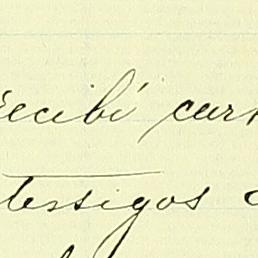 recibí car
tessigos